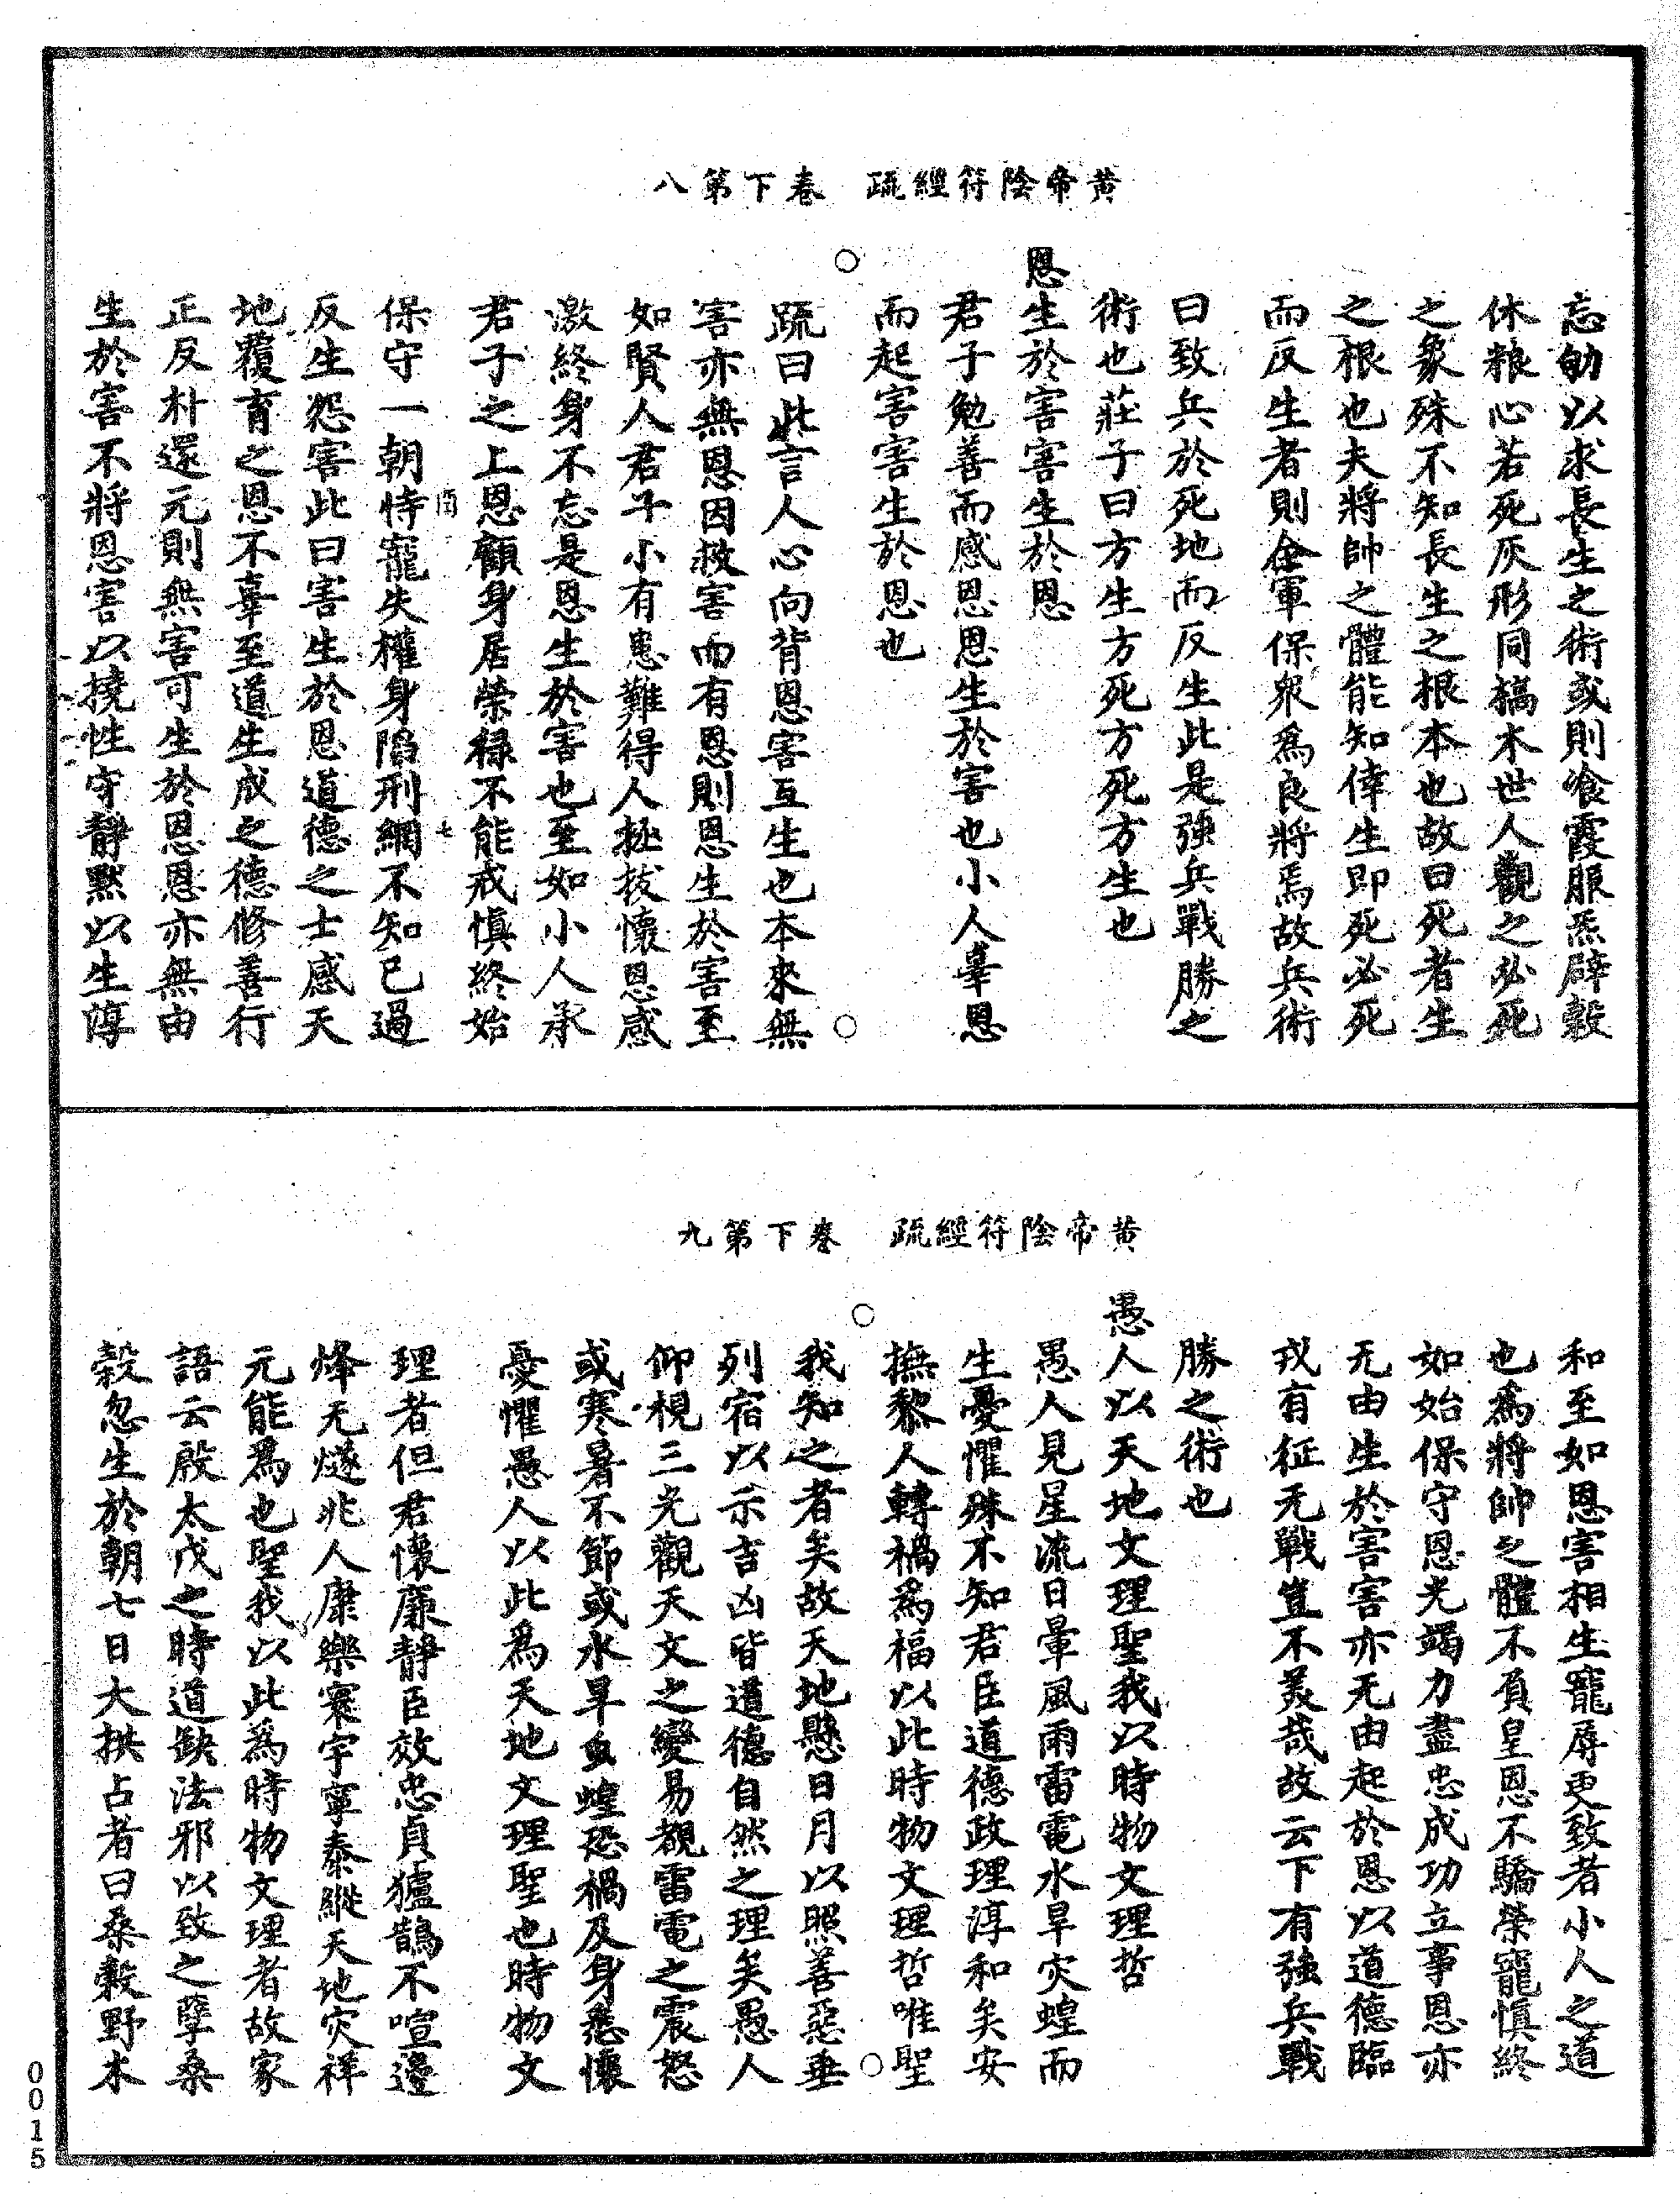 黃帝陰符經疏　卷下第八
忘劬以求長生之術或則飡霞服炁辟穀
休粮心若死灰形同槁木世人觀之必死
之象殊不知長生之根本也故曰死者生
之根也夫將帥之體能知倖生即死必死
而反生者則全軍保眾爲良將焉故兵術
曰致兵於死地而反生此是強兵戰勝之
術也莊子曰方生方死方死方生也
恩生於害害生於恩
君子勉善而感恩恩生於害也小人辜恩
而起害害生於恩也
疏曰此言人心向背恩害互生也本來無
害亦無恩因救害而有恩則恩生於害至
如賢人君子小有患難得人拯拔懷恩感
激終身不忘是恩生於害也至如小人承
君子之上恩顧身居榮祿不能戒慎終始
七
保守一朝恃寵失權身陷刑網不知已過
反生怨害此曰害生於恩道德之士感天
地覆育之恩不辜至道生成之德修善行
正反朴還元則無害可生於恩恩亦無由
生於害不將恩害以撓性守靜默以生淳
黃帝陰符經疏　卷下第九
和至如恩害相生寵辱更致者小人之道
也爲將帥之體不負皇恩不驕榮寵慎終
如始保守恩光竭力盡忠成功立事恩亦
无由生於害害亦无由起於恩以道德臨
戎有征无戰豈不美哉故云下有強兵戰
勝之術也
愚人以天地文理聖我以時物文理哲
愚人見星流日暈風雨雷電水旱灾蝗而
生憂懼殊不知君臣道德政理淳和矣安
撫黎人轉禍爲福以此時物文理哲唯聖
我知之者矣故天地懸日月以照善惡垂
列宿以示吉凶皆道德自然之理矣愚人
仰視三光觀天文之變易覩雷電之震怒
或寒暑不節或水旱虫蝗恐禍及身悉懷
憂懼愚人以此爲天地文理聖也時物文
理者但君懷廉靜臣效忠貞獹鵲不喧邊
烽无燧兆人康樂寰宇寧泰縱天地灾祥
元能爲也聖我以此爲時物文理者故家
語云殷太戊之時道缺法邪以致之孽桑
榖忽生於朝七日大拱占者曰桑榖野木
0015